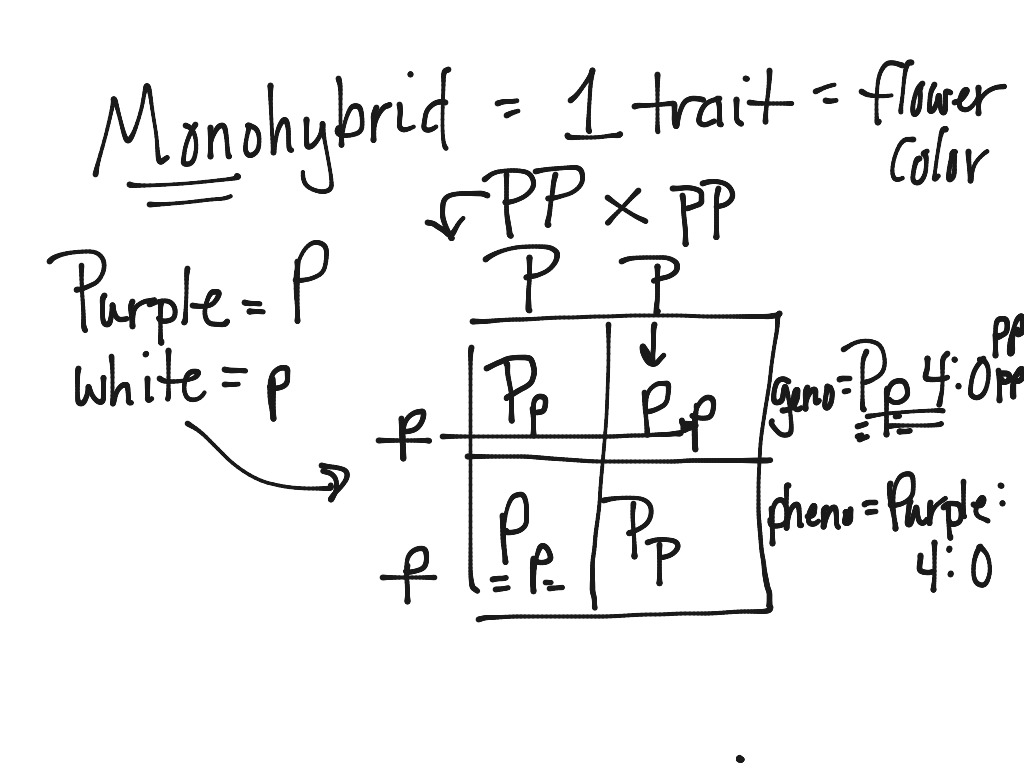 Monohybrid = 1 trait = flower
color
PP × pp
Purple = P
white = p
P P
p Pp Pp
p Pp Pp
geno = Pp 4:0 PP
pp
pheno = Purple:
4:0